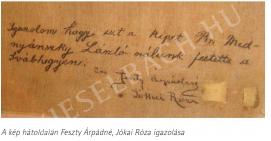 Igazolom hogy ezt a képet Bn Med-
nyánszky László nálunk festette a
Svábhegyen.
Feszty Árpádné
Jókai Róza
A kép hátoldalán Feszty Árpádné, Jókai Róza igazolása